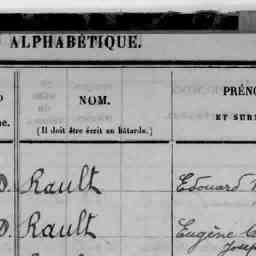 ALPHABÉTIQUE.
NOM.
(Il doit être écrit en bâtarde.)
PRÉNO
ET SUR
ne.
D. Rault Edouard
D. Rault Eugène
Josep